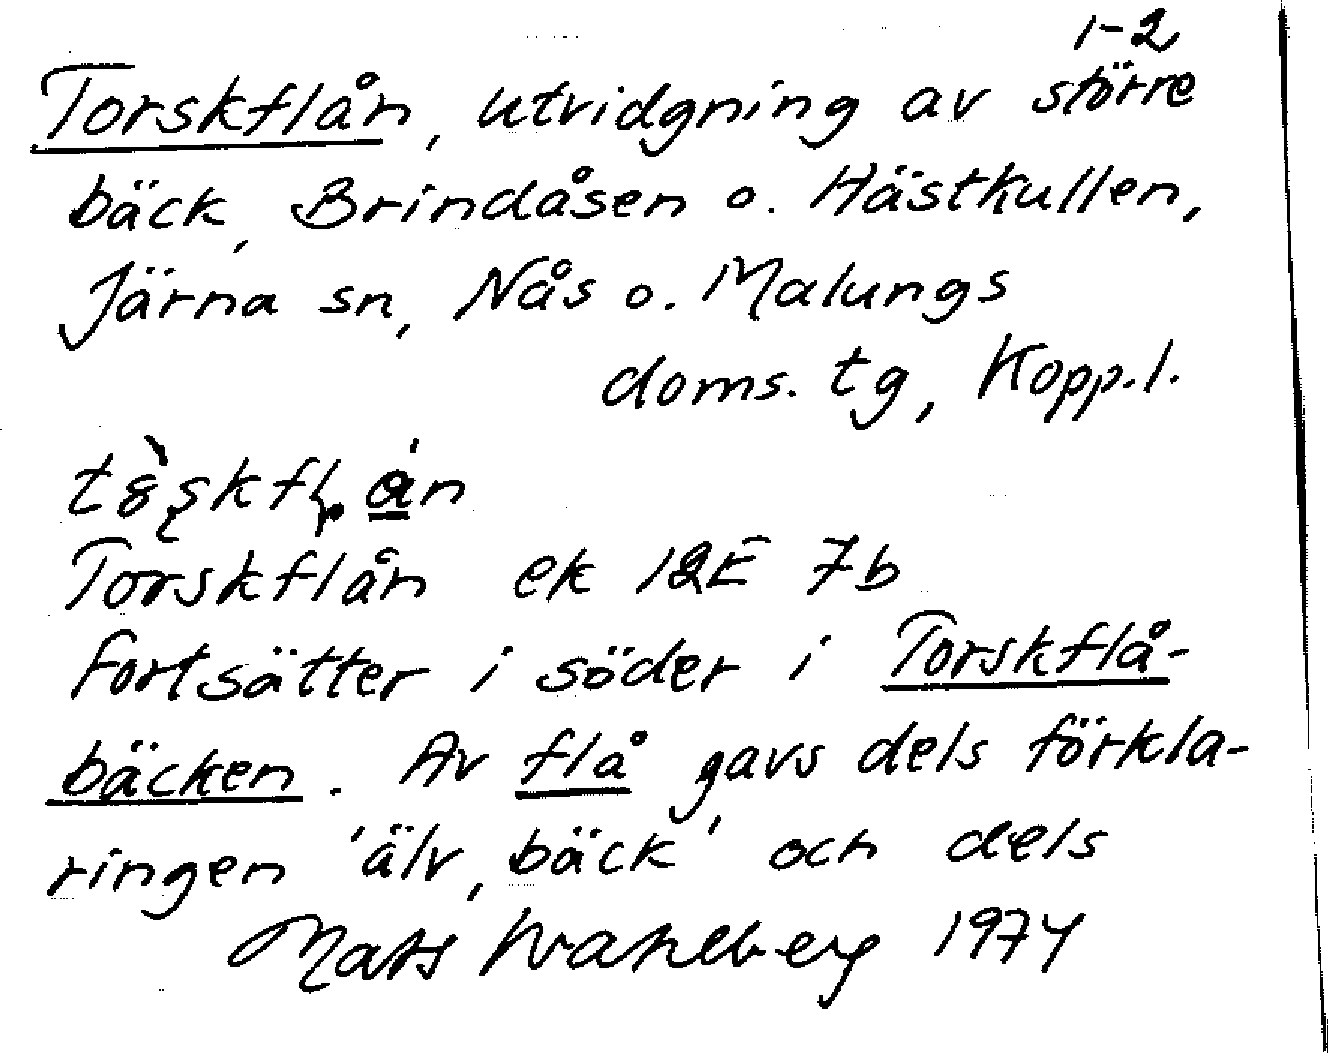 1-2
Torskflån, utvidgning av större
bäck, Brindåsen o. Hästkullen,
Järna sn, Nås o. Malungs
doms. tg, Kopp.l.
Torskflån ek 12E 7b
Fortsätter i söder i Torskflå-
bäcken. Av flå gavs dels förkla-
ringen 'älv, bäck' och dels
Mats Wahlberg 1974